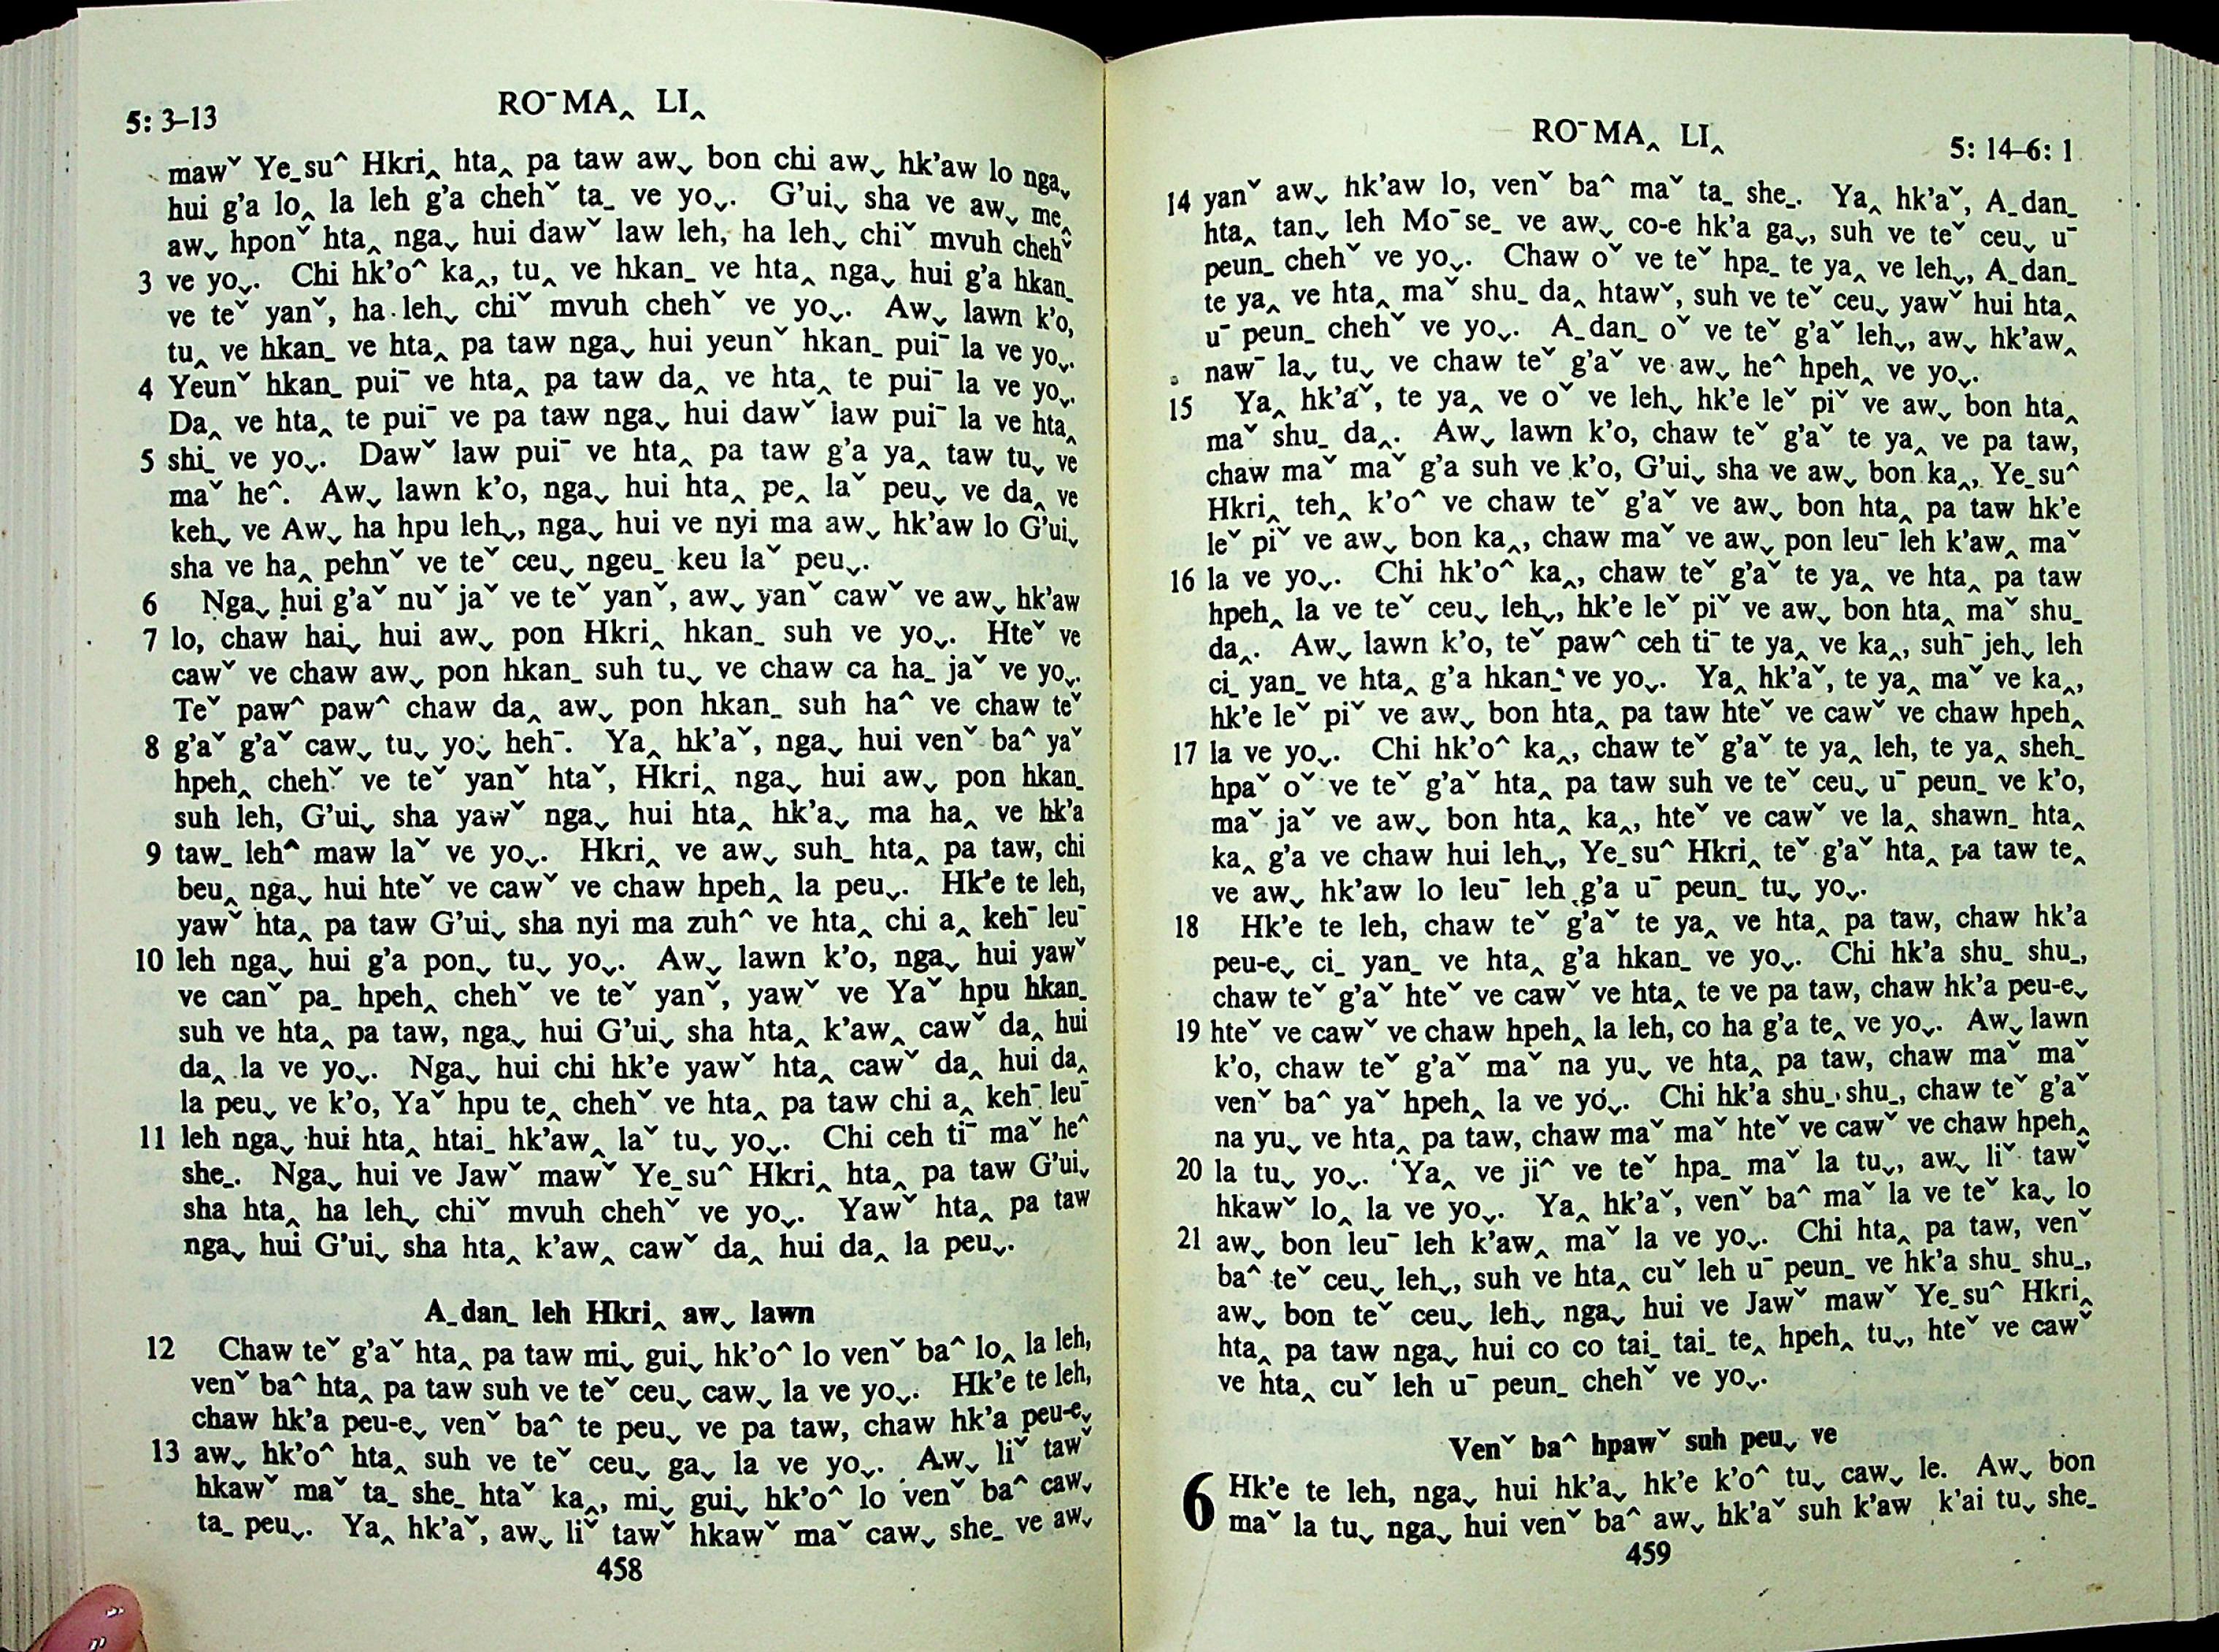 5: 3–13
RO¯MA‸ LI‸
mawˇ Ye_su^ Hkri‸ hta‸ pa taw aw⌄ bon chi aw⌄ hk’aw lo nga⌄
hui g’a lo‸ la leh g’a chehˇ ta_ ve yo⌄. G’ui⌄ sha ve aw⌄ me‸
aw⌄ hponˇ hta‸ nga⌄ hui dawˇ law leh, ha leh⌄ chiˇ mvuh chehˇ
3 ve yo⌄. Chi hk’o^ ka‸, tu‸ ve hkan_ ve hta‸ nga⌄ hui g’a hkan_
ve teˇ yanˇ, ha leh⌄ chiˇ mvuh chehˇ ve yo⌄. Aw⌄ lawn k’o,
tu‸ ve hkan_ ve hta‸ pa taw nga⌄ hui yeunˇ hkan_ pui¯ la ve yo⌄.
4 Yeunˇ hkan_ pui¯ ve hta‸ pa taw da‸ ve hta‸ te pui¯ la ve yo⌄.
Da‸ ve hta‸ te pui¯ ve pa taw nga⌄ hui dawˇ law pui¯ la ve hta‸
5 shi_ ve yo⌄. Dawˇ law pui¯ ve hta‸ pa taw g’a ya‸ taw tu⌄ ve
maˇ he^. Aw⌄ lawn k’o, nga⌄ hui hta‸ pe‸ laˇ peu⌄ ve da‸ ve
keh⌄ ve Aw⌄ ha hpu leh⌄, nga⌄ hui ve nyi ma aw⌄ hk’aw lo G’ui⌄
sha ve ha‸ pehnˇ ve teˇ ceu⌄ ngeu_ keu laˇ peu⌄.
6 Nga⌄ hui g’aˇ nuˇ jaˇ ve teˇ yanˇ, aw⌄ yanˇ cawˇ ve aw⌄ hk’aw
7 lo, chaw hai⌄ hui aw⌄ pon Hkri‸ hkan_ suh ve yo⌄. Hteˇ ve
cawˇ ve chaw aw⌄ pon hkan_ suh tu⌄ ve chaw ca ha_ jaˇ ve yo⌄.
Teˇ paw^ paw^ chaw da‸ aw⌄ pon hkan_ suh ha^ ve chaw teˇ
8 g’aˇ g’aˇ caw⌄ tu⌄ yo⌄ heh¯. Ya‸ hk’aˇ, nga⌄ hui venˇ ba^ yaˇ
hpeh‸ chehˇ ve teˇ yanˇ htaˇ, Hkri‸ nga⌄ hui aw⌄ pon hkan_
suh leh, G’ui⌄ sha yawˇ nga⌄ hui hta‸ hk’a⌄ ma ha‸ ve hk’a
9 taw_ leh^ maw laˇ ve yo⌄. Hkri‸ ve aw⌄ suh_ hta‸ pa taw, chi
beu‸ nga⌄ hui hteˇ ve cawˇ ve chaw hpeh‸ la peu⌄. Hk’e te leh,
yawˇ hta‸ pa taw G’ui⌄ sha nyi ma zuh^ ve hta‸ chi a‸ keh¯ leu¯
10 leh nga⌄ hui g’a pon⌄ tu⌄ yo⌄. Aw⌄ lawn k’o, nga⌄ hui yawˇ
ve canˇ pa_ hpeh‸ chehˇ ve teˇ yanˇ, yawˇ ve Yaˇ hpu hkan_
suh ve hta‸ pa taw, nga⌄ hui G’ui⌄ sha hta‸ k’aw‸ cawˇ da‸ hui
da‸ la ve yo⌄. Nga⌄ hui chi hk’e yawˇ hta‸ cawˇ da‸ hui da‸
la peu⌄ ve k’o, Yaˇ hpu te‸ chehˇ ve hta‸ pa taw chi a‸ keh¯ leu¯
11 leh nga⌄ hui hta‸ htai_ hk’aw‸ laˇ tu⌄ yo⌄. Chi ceh ti¯ maˇ he^
she_. Nga⌄ hui ve Jawˇ mawˇ Ye_su^ Hkri‸ hta‸ pa taw G’ui⌄
sha hta‸ ha leh⌄ chiˇ mvuh chehˇ ve yo⌄. Yawˇ hta‸ pa taw
nga⌄ hui G’ui⌄ sha hta‸ k’aw‸ cawˇ da‸ hui da‸ la peu⌄.
A_dan_ leh Hkri‸ aw⌄ lawn
12 Chaw teˇ g’aˇ hta‸ pa taw mi⌄ gui⌄ hk’o^ lo venˇ ba^ lo‸ la leh,
venˇ ba^ hta‸ pa taw suh ve teˇ ceu⌄ caw⌄ la ve yo⌄. Hk’e te leh,
chaw hk’a peu-e⌄ venˇ ba^ te peu⌄ ve pa taw, chaw hk’a peu-e⌄
13 aw⌄ hk’o^ hta‸ suh ve teˇ ceu⌄ ga⌄ la ve yo⌄. Aw⌄ liˇ tawˇ
hkawˇ maˇ ta_ she_ htaˇ ka‸, mi⌄ gui⌄ hk’o^ lo venˇ ba^ caw⌄
ta_ peu⌄. Ya‸ hk’aˇ, aw⌄ liˇ tawˇ hkawˇ maˇ caw⌄ she_ ve aw⌄
458
RO¯MA‸ LI‸
5: 14–6: 1
14 yanˇ aw⌄ hk’aw lo, venˇ ba^ maˇ ta_ she_. Ya‸ hk’aˇ, A_dan_
hta‸ tan⌄ leh Mo¯se_ ve aw⌄ co-e hk’a ga⌄, suh ve teˇ ceu⌄ u¯
peun_ chehˇ ve yo⌄. Chaw oˇ ve teˇ hpa_ te ya‸ ve leh⌄, A_dan_
te ya‸ ve hta‸ maˇ shu_ da‸ htawˇ, suh ve teˇ ceu⌄ yawˇ hui hta‸
u¯ peun_ chehˇ ve yo⌄. A_dan_ oˇ ve teˇ g’aˇ leh⌄, aw⌄ hk’aw‸
naw¯ la⌄ tu⌄ ve chaw teˇ g’aˇ ve aw⌄ he^ hpeh‸ ve yo⌄.
15 Ya‸ hk’aˇ, te ya‸ ve oˇ ve leh⌄ hk’e leˇ piˇ ve aw⌄ bon hta‸
maˇ shu_ da‸. Aw⌄ lawn k’o, chaw teˇ g’aˇ te ya‸ ve pa taw,
chaw maˇ maˇ g’a suh ve k’o, G’ui⌄ sha ve aw⌄ bon ka‸, Ye_su^
Hkri‸ teh‸ k’o^ ve chaw teˇ g’aˇ ve aw⌄ bon hta‸ pa taw hk’e
leˇ piˇ ve aw⌄ bon ka‸, chaw maˇ ve aw⌄ pon leu¯ leh k’aw‸ maˇ
16 la ve yo⌄. Chi hk’o^ ka‸, chaw teˇ g’aˇ te ya‸ ve hta‸ pa taw
hpeh‸ la ve teˇ ceu⌄ leh⌄, hk’e leˇ piˇ ve aw⌄ bon hta‸ maˇ shu_
da‸. Aw⌄ lawn k’o, teˇ paw^ ceh ti¯ te ya‸ ve ka‸, suh¯ jeh⌄ leh
ci_ yan_ ve hta‸ g’a hkan_ ve yo⌄. Ya‸ hk’aˇ, te ya‸ maˇ ve ka‸,
hk’e leˇ piˇ ve aw⌄ bon hta‸ pa taw hteˇ ve cawˇ ve chaw hpeh‸
17 la ve yo⌄. Chi hk’o^ ka‸, chaw teˇ g’aˇ te ya‸ leh, te ya‸ sheh_
hpaˇ oˇ ve teˇ g’aˇ hta‸ pa taw suh ve teˇ ceu⌄ u¯ peun_ ve k’o,
maˇ jaˇ ve aw⌄ bon hta‸ ka‸, hteˇ ve cawˇ ve la‸ shawn_ hta‸
ka‸ g’a ve chaw hui leh⌄, Ye_su^ Hkri‸ teˇ g’aˇ hta‸ pa taw te‸
ve aw⌄ hk’aw lo leu¯ leh g’a u¯ peun_ tu⌄ yo⌄.
18 Hk’e te leh, chaw teˇ g’aˇ te ya‸ ve hta‸ pa taw, chaw hk’a
peu-e⌄ ci_ yan_ ve hta‸ g’a hkan_ ve yo⌄. Chi hk’a shu_ shu_,
chaw teˇ g’aˇ hteˇ ve cawˇ ve hta‸ te ve pa taw, chaw hk’a peu-e⌄
19 hteˇ ve cawˇ ve chaw hpeh‸ la leh, co ha g’a te‸ ve yo⌄. Aw⌄ lawn
k’o, chaw teˇ g’aˇ maˇ na yu⌄ ve hta‸ pa taw, chaw maˇ maˇ
venˇ ba^ yaˇ hpeh‸ la ve yo⌄. Chi hk’a shu_ shu_, chaw teˇ g’aˇ
na yu⌄ ve hta‸ pa taw, chaw maˇ maˇ hteˇ ve cawˇ ve chaw hpeh‸
20 la tu⌄ yo⌄. Ya‸ ve ji^ ve teˇ hpa_ maˇ la tu⌄, aw⌄ liˇ tawˇ
hkawˇ lo‸ la ve yo⌄. Ya‸ hk’aˇ, venˇ ba^ maˇ la ve teˇ ka⌄ lo
21 aw⌄ bon leu¯ leh k’aw‸ maˇ la ve yo⌄. Chi hta‸ pa taw, venˇ
ba^ teˇ ceu⌄ leh⌄, suh ve hta‸ cuˇ leh u¯ peun_ ve hk’a shu_ shu_,
aw⌄ bon teˇ ceu⌄ leh⌄ nga⌄ hui ve Jawˇ mawˇ Ye_su^ Hkri‸
hta‸ pa taw nga⌄ hui co co tai_ tai_ te‸ hpeh‸ tu⌄, hteˇ ve cawˇ
ve hta‸ cuˇ leh u¯ peun_ chehˇ ve yo⌄.
Venˇ ba^ hpawˇ suh peu⌄ ve
6 Hk’e te leh, nga⌄ hui hk’a⌄ hk’e k’o^ tu⌄ caw⌄ le. Aw⌄ bon
maˇ la tu⌄ nga⌄ hui venˇ ba^ aw⌄ hk’aˇ suh k’aw k’ai tu⌄ she_
459